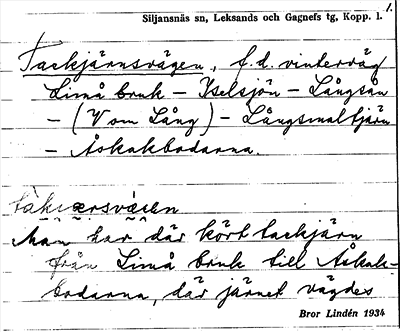 1.
Siljansnäs sn, Leksands och Gagnefs tg, Kopp. l.
Tackjärnsvägen, f.d. vinterväg
Limå bruk – Kselsjön – Långsån
– (V om Lång) – Långsmaltjärn
– Åskakbodarna.
Man har där kört tackjärn
från Limå bruk till Åskak-
bodarna, där järnet vägdes
Bror Lindén 1934